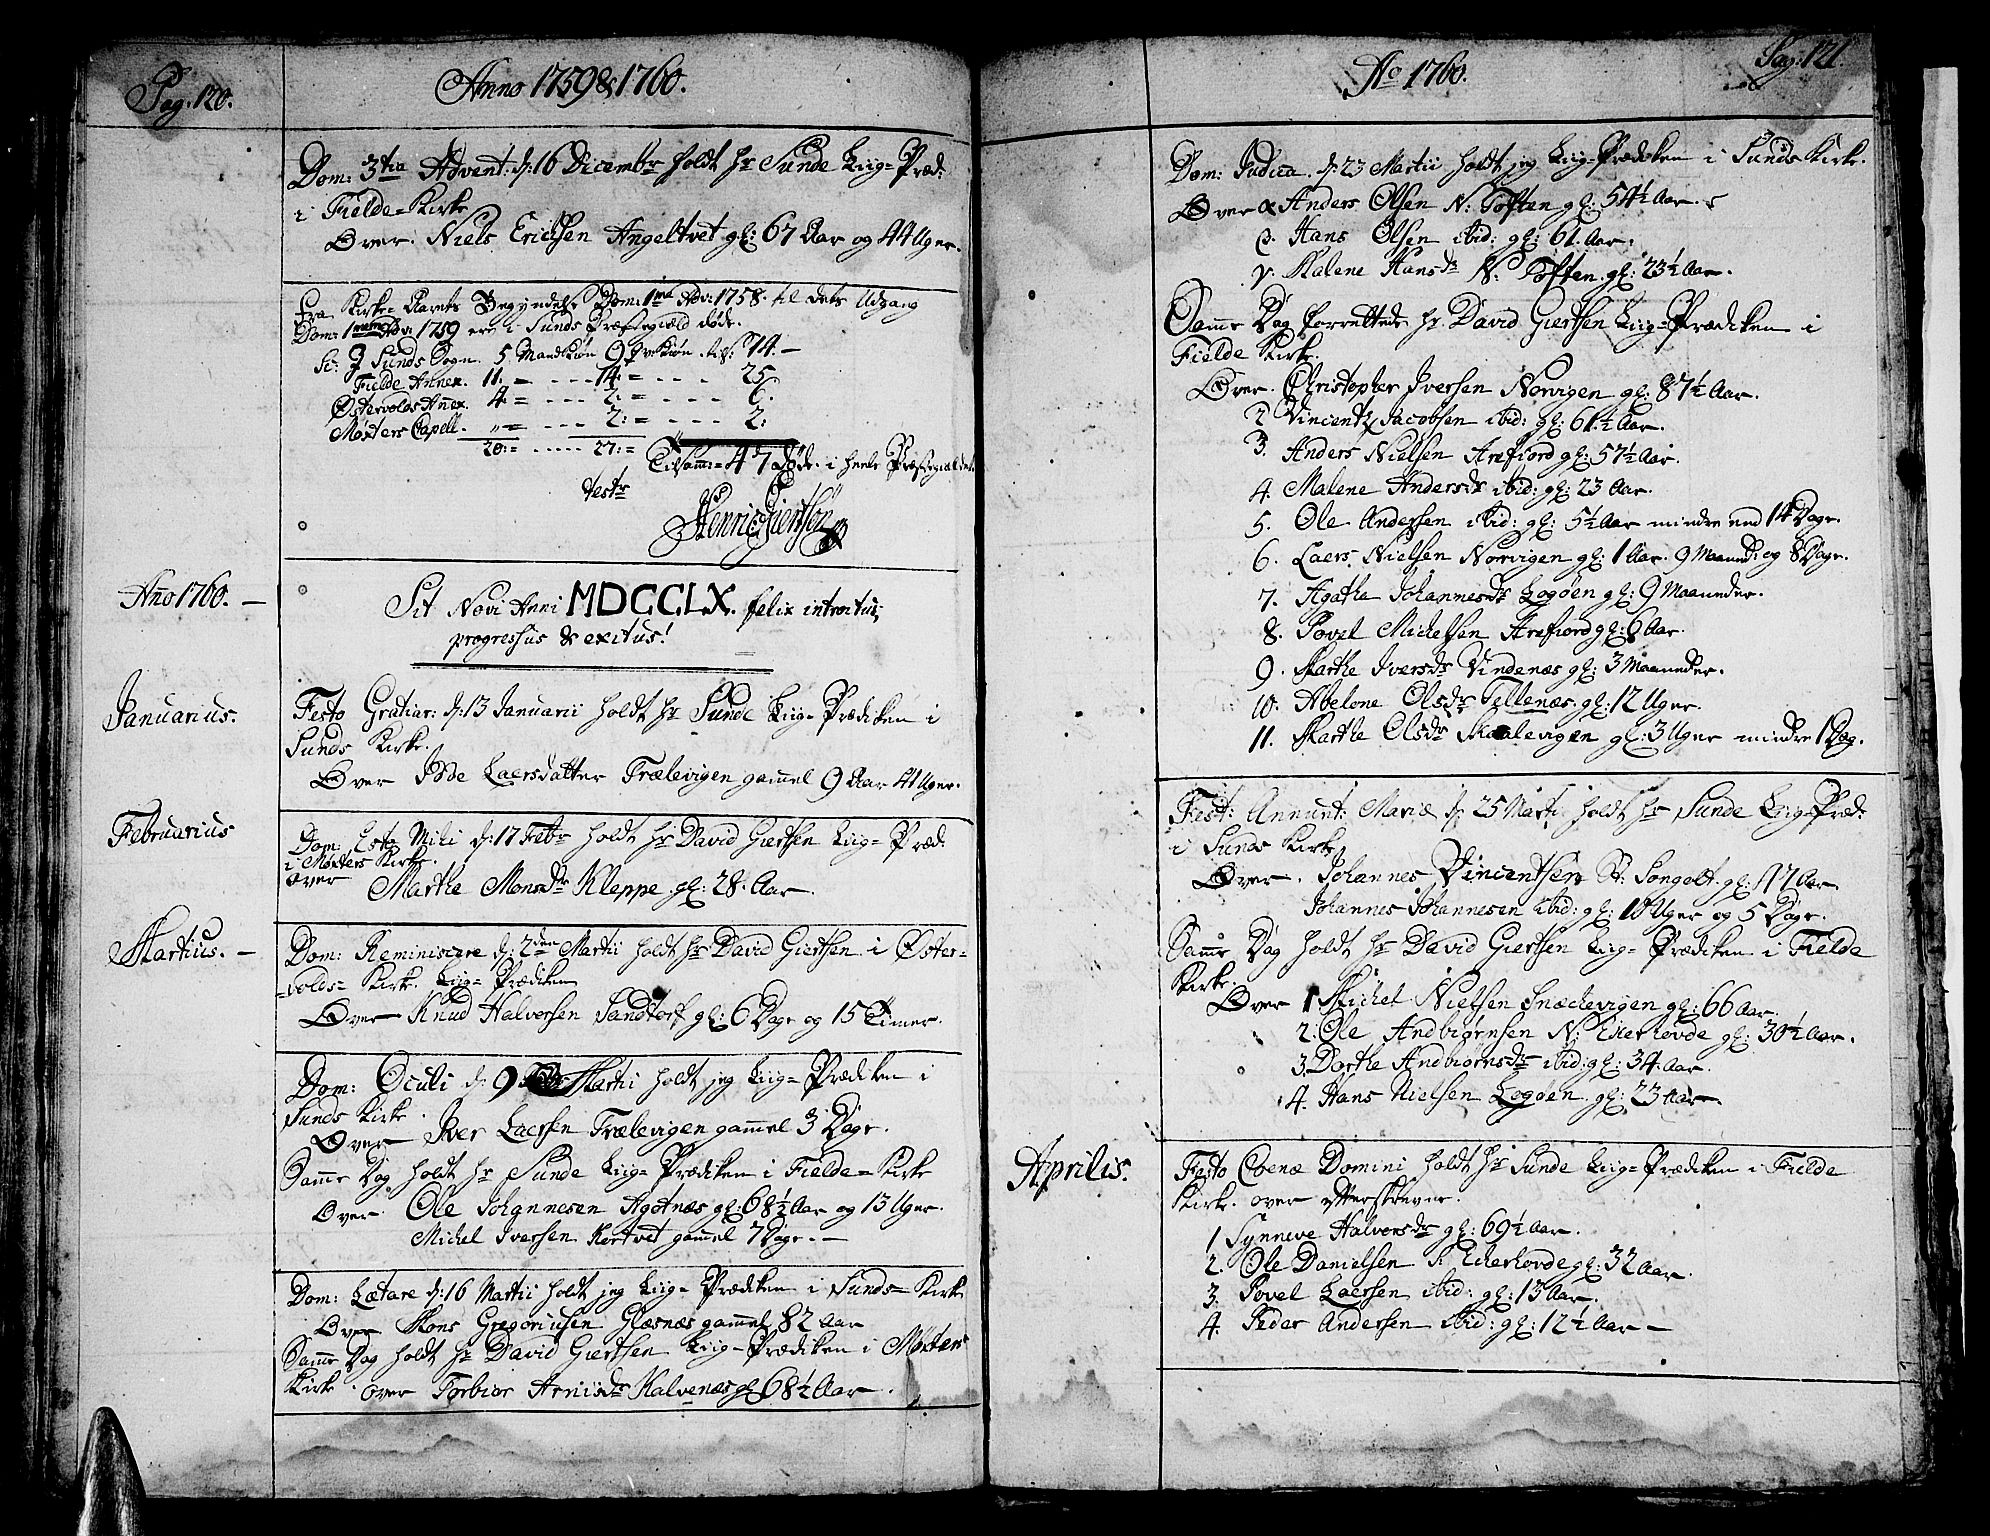 Pag. 120.
Anno 1759 & 1760.
Dom: 3tia Advent. d: 16 Dicembr holdt hr Sunde Liig-Præd:
i Fielde-Kirke
Over. Niels Ericksen Angeltvet gl: 67 Aar og 44 Uger.
Fra Kirke-Aarets Begyndelse Dom: 1ma Adv: 1758. til dets Udgang
Dom: 1mam Adv: 1759 ere i Sunds Præstegield døde.
Sc: J Sunds Sogn. 5 Mandkiøn 9 Qvekiøn. til: 14.-
Fielde Annex. 11. = - - - 14. = - - - 25
Østervolds Annex. 4. = - - - 2. = - - - 6.
Møxters Capell. „ = - - - 2: = - - - 2:
20: = - - - - - 27: =
Tilsamm: = 47 Døde i heele Præstegieldet.
testr
Henric Giertsön
Año 1760. -
Sit Novi Anni MDCCLX. felix introitus,
progressus & exitus!
Januarius.
Festo Gratiar: d: 13 Januarii holdt hr Sunde Liig-Prædiken i
Sunds Kirke.
Over Laersdatter Trælevigen gamel 9 Aar 41 Uger.
Februarius
Dom Esto Mihi d: 17 Febr holdt hr David Giertsen Liig-Præd.
i Møxters Kirke.
Over Marthe Monsdr Kleppe. gl: 28. Aar.
Martius. -
Dom: Reminiscere d: 2den Martii holdt hr David Giertsen i Øster-
-volds-Kirke. Liig-Prædiken
Over Knud Halversen Sandtorf gl: 6 Dage og 15 Timer.
Dom: Oculi d: 9 Martii holdt jeg Liig-Prædiken i
Sunds Kirke.
Over Iver Laersen Trælevigen gamel 3 Dage.
Same Dag holdt hr Sunde Liig-Prædiken i Fielde-Kirke
Over Ole Johannesen Agotnæs gl: 68½ Aar og 13 Uger.
Michel Iversen Kortvet gamel 7 Dage. -
Dom: Lætare d: 16 Martii holdt jeg Liig-Prædiken i Sunds-Kirke
Over Mons Gregoriusen Glæsnæs gamel 82 Aar
Same Dag holdt hr David Giertsen Liig-Prædiken i Møxters
Kirke. over Torbior Arnisdr Kalvenæs gl 68½ Aar.
Ao 1760.
Pag. 121.
Dom: Judica. d: 23 Martii holdt jeg Liig-Prædiken i Sunds Kirke.
Over α Anders Olsen N: Toften gl: 54½ Aar.
β. Hans Olsen ibid: gl: 61. Aar.
γ. Malene Hansdr N: Toften. gl: 23½ Aar.
Same Dag forrettede hr. David Giertsen Liig-Prædiken i
Fielde Kirke.
Over. Christopher Iversen Norvigen gl: 87½ Aar.
2 Vincentz Jacobsen ibid: gl: 61½ Aar.
3. Anders Nielsen Arefiord gl: 57½ Aar.
4. Malene Andersdr ibid: gl: 23 Aar.
5. Ole Andersen ibid: gl: 5½ Aar mindre end 14 Dage.
6. Laers Nielsen Norvigen gl: 1 Aar. 9 Maaned: og 8 Dage.
7. Agathe Johannesdr Logøen gl: 9 Maaneder.
8. Povel Michelsen Arefiord gl: 6 Aar.
9. Marthe Iversdr Vindenæs gl: 3 Maaneder.
10. Abelone Olsdr Tellenæs. gl: 12 Uger.
11. Marthe Olsdr Skaalevigen gl: 3 Uger mindre 1 Dag.
Fest: Annunt: Mariæ d: 25 Marti. holdt hr Sunde Liig-Præd:
i Sunds Kirke
Over. Johannes Vincentsen St: Songelt. gl: 17 Aar
Johannes Johannesen ibid: gl: 10 Uger og 5 Dage.
Same Dag holdt hr David Giertsen Liig-Prædiken i Fielde
Kirke.
Over 1 Michel Nielsen Snæckevigen gl: 66 Aar.
2. Ole Andbiørnsen N: Eckerhovde gl: 30½ Aar.
3. Dorthe Andbiørnsdr ibid: gl: 34. Aar.
4. Hans Nielsen Logøen. gl: 23 Aar.
Aprilis.
Festo Coenæ Domini holdt hr Sunde Liig-Prædiken i Fielde
Kirke. over efterskrevne.
1 Synneve Halversdr gl: 69½ Aar.
2. Ole Danielsen S. Eckerhovde gl: 32 Aar.
3. Povel Laersen ibid: gl: 13 Aar.
4. Peder Andersen ibid: gl: 12½ Aar -